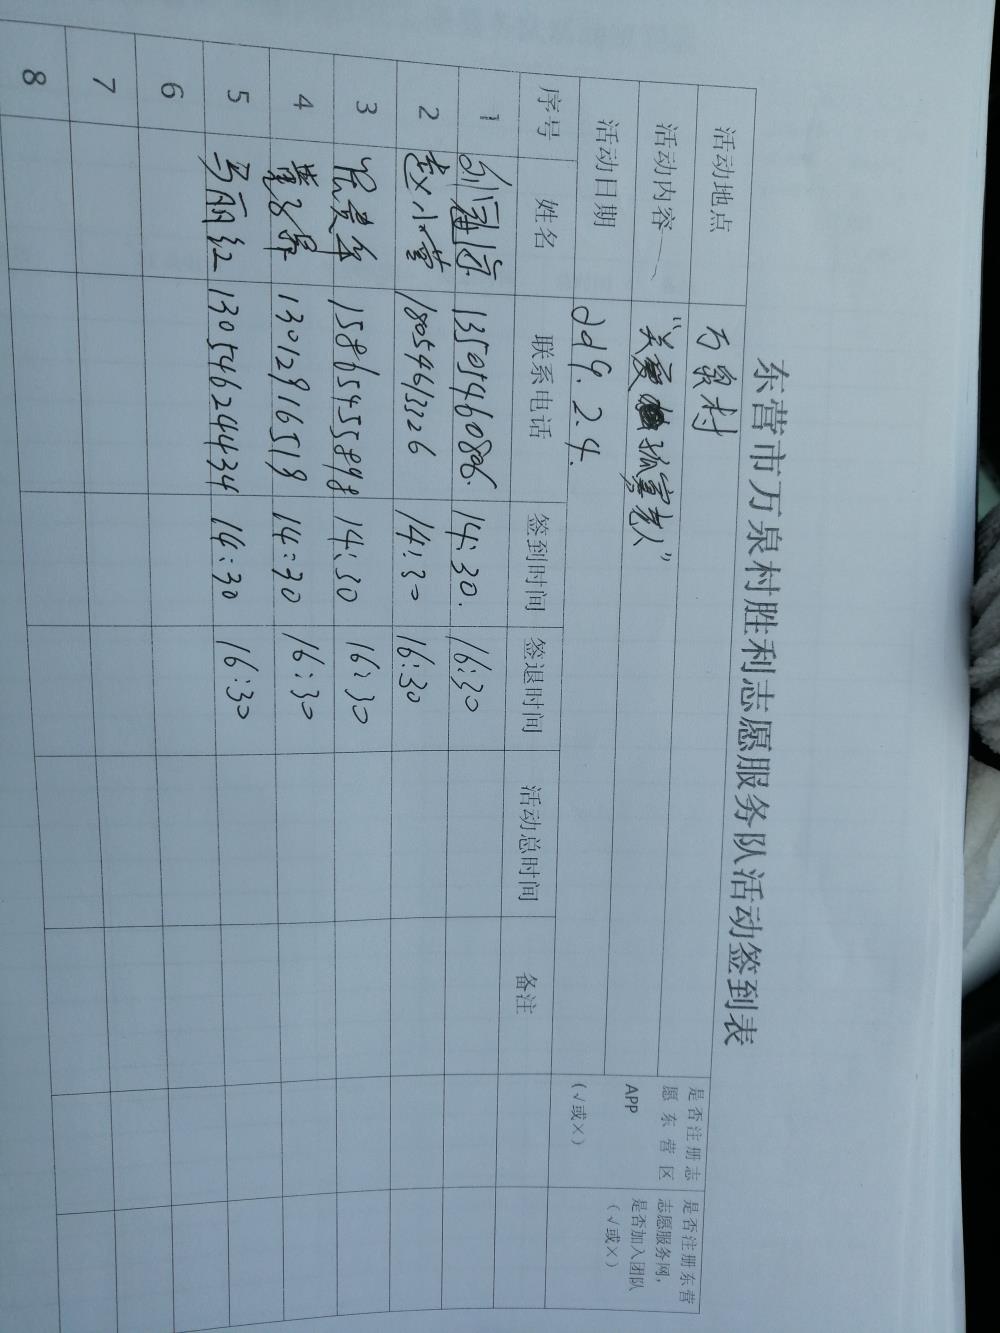 东营市万泉村胜利志愿服务队活动签到表
活动地点 万泉村 是否注册志愿东营区APP（√或×） 是否注册东营志愿服务网，是否加入团队（√或×）
活动内容 “关爱孤寡老人”
活动日期 2019.2.4.
序号 姓名 联系电话 签到时间 签退时间 活动总时间 备注
1 14:30. 16:30
2 赵小营 18054613326 14:30 16:30
3 15865455898 14:30 16:30
4 13012916519 14:30 16:30
5 马丽红 13054624434 14:30 16:30
6
7
8